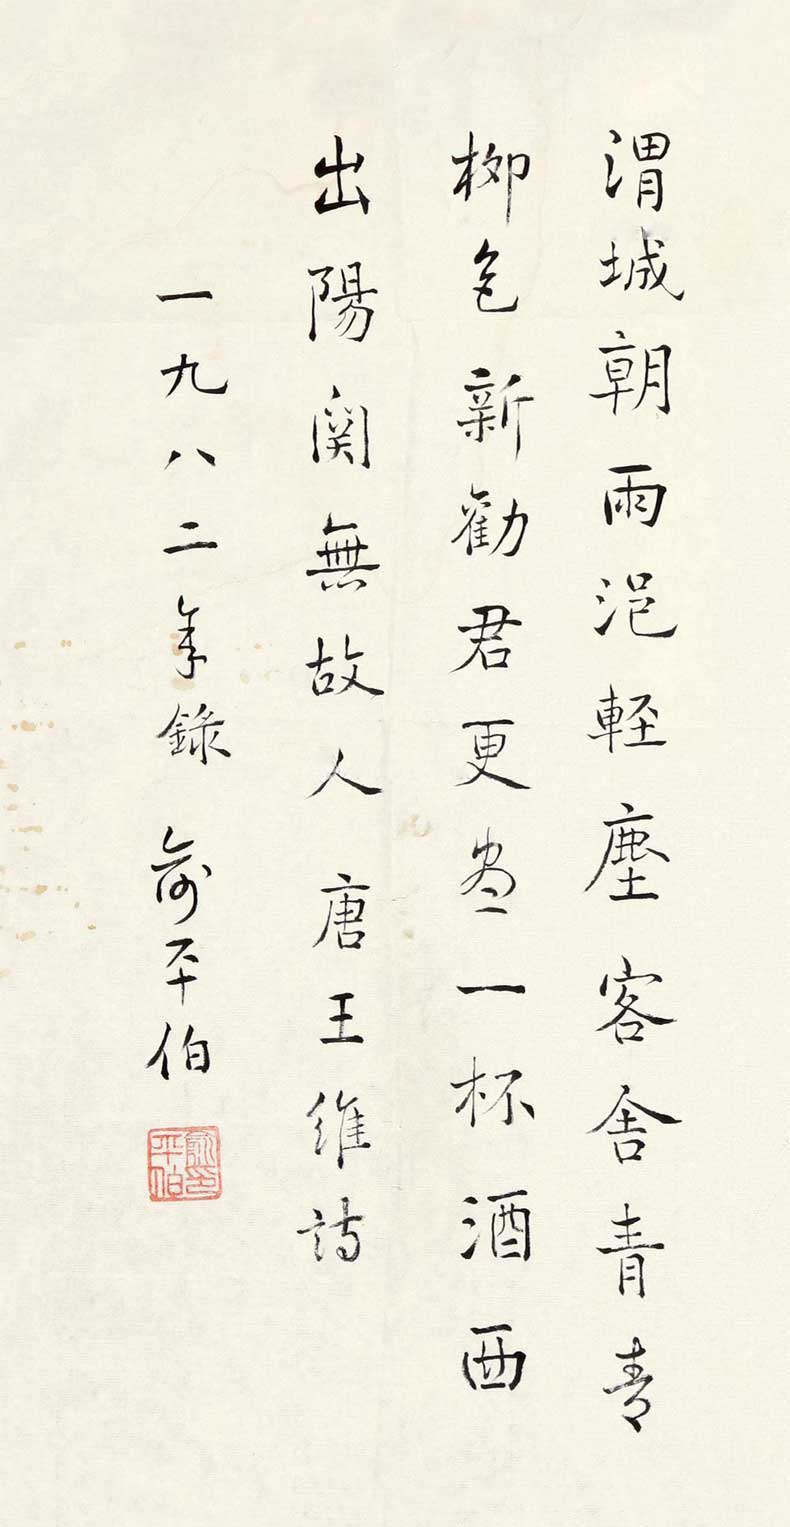 渭城朝雨浥輕塵客舍青青
柳色新勸君更盡一杯酒西
出陽関無故人 唐王維詩
一九八二年錄 俞平伯
俞平伯印